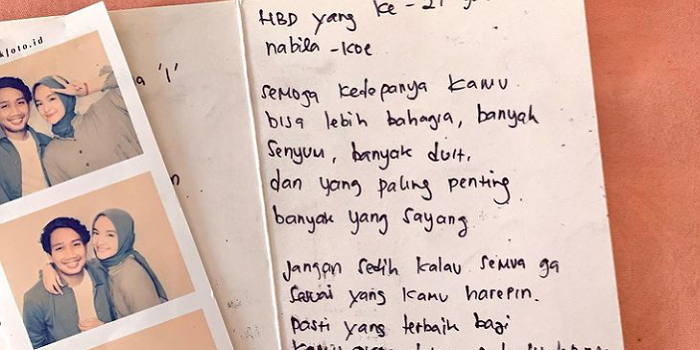 kfoto.id
a 'l'
HBD yang ke - 21
nabila - koe
semoga kedepanya kamu
bisa lebih bahagia, banyak
senyum, banyak duit,
dan yang paling penting
banyak yang sayang
jangan sedih kalau semua ga
sesuai yang kamu harepin.
pasti yang terbaik bagi